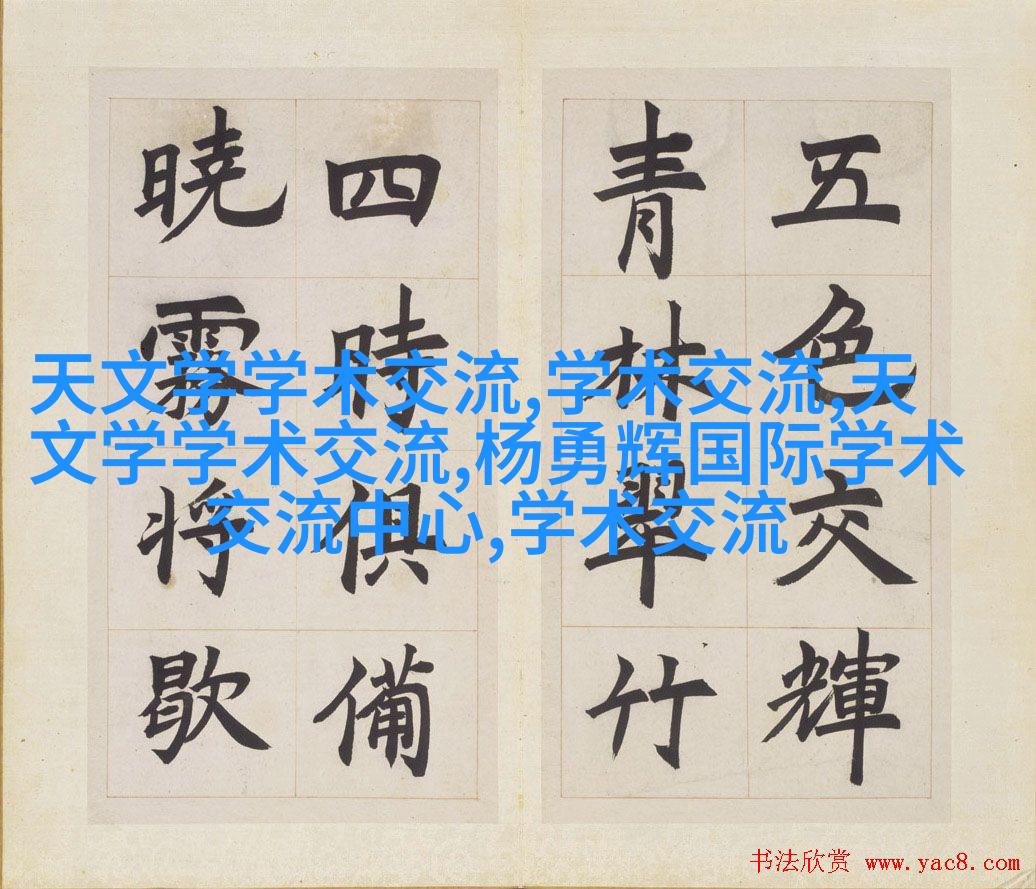 五色交輝
青林翠竹
四時俱備
曉霧將歇
天文学学术交流,学术交流,天
文学学术交流,杨勇辉国际学术
交流中心,学术交流
书法欣赏 www.yac8.com